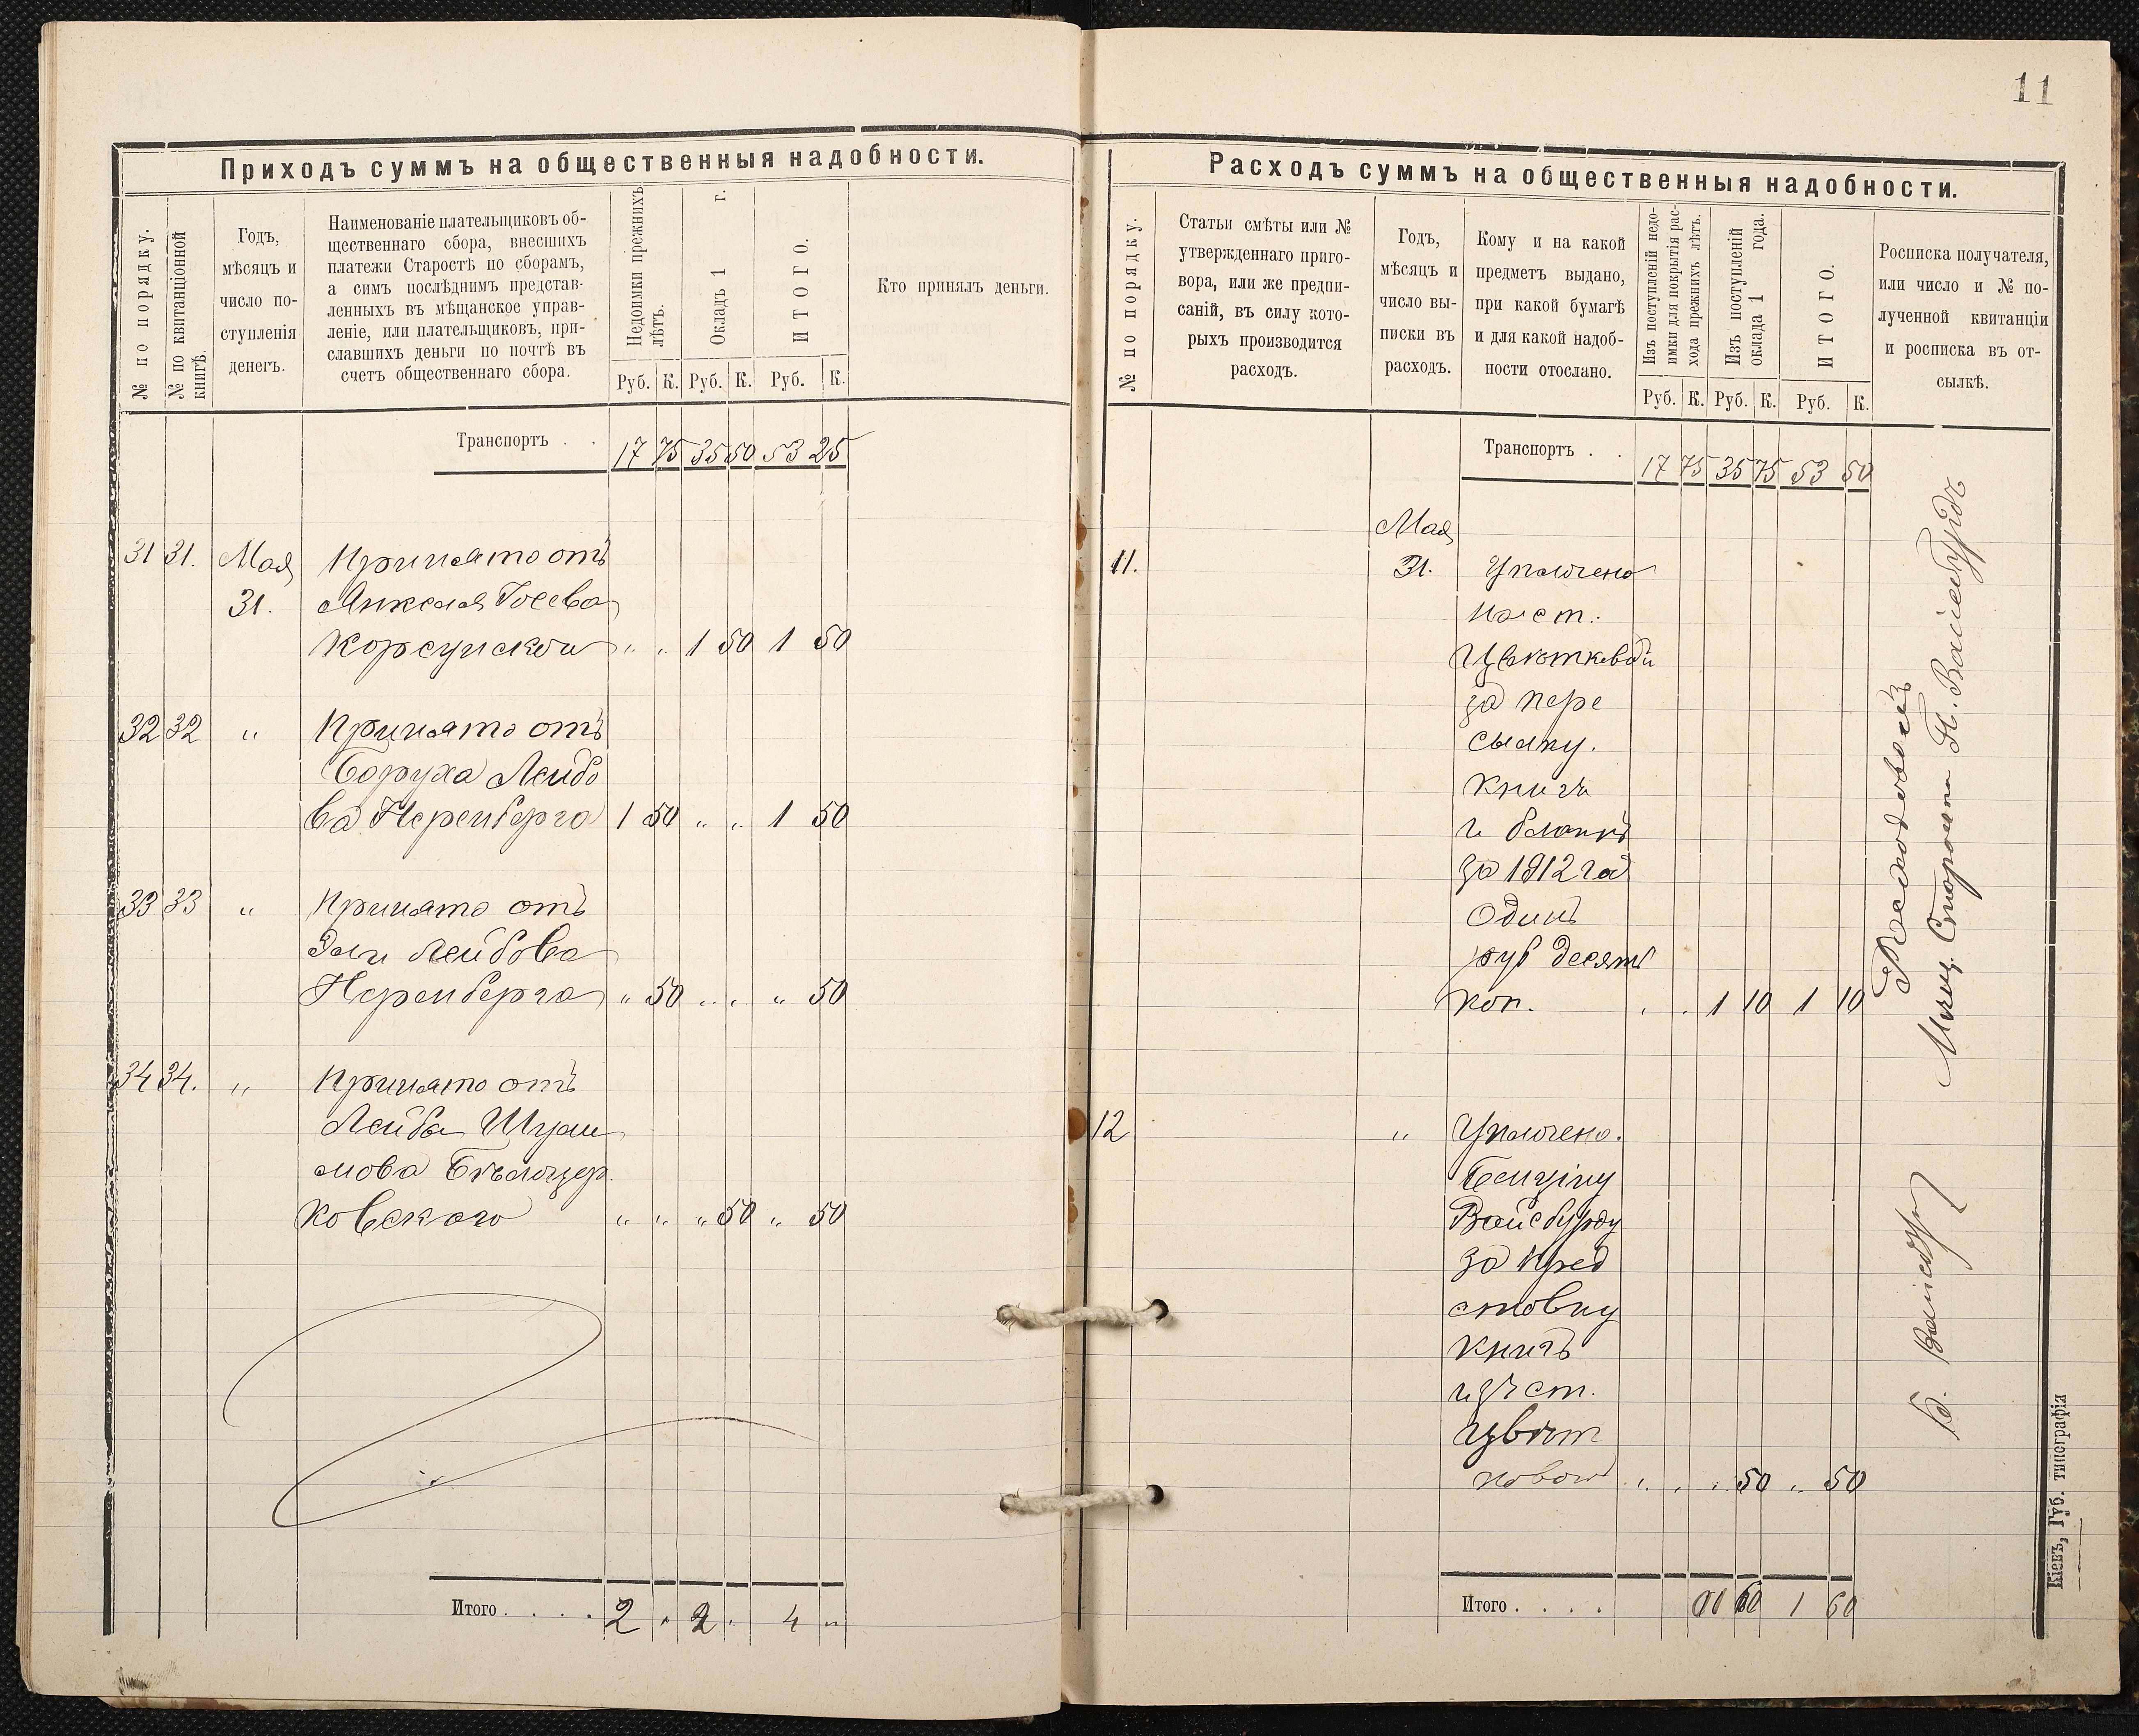 11
Приходъ суммъ на общественныя надобности.
№ по порядку.
№ по квитанціонной
книгѣ.
Годъ,
мѣсяцъ и
число по-
ступленія
денегъ.
Наименованіе плательщиковъ об-
щественнаго сбора, внесшихъ
платежи Старостѣ по сборамъ,
а симъ послѣднимъ представ-
ленныхъ въ мѣщанское управ-
леніе, или плательщиковъ, при-
славшихъ деньги по почтѣ въ
счетъ общественнаго сбора.
Недоимки прежнихъ
лѣтъ.
Окладъ 1 г.
ИТОГО.
Кто принялъ деньги.
Руб. К. Руб. К. Руб. К.
Транспортъ . . 17 75 35 50 53 25
31 31. Мая Принято отъ
31.
Корсунской " " 1 50 1 50
32 32 " Принято отъ
Боруха Лейбо
ва Неренберга 1 50 " " 1 50
33 33 " Принято отъ
Эли Лейбова
Неренберга " 50 " " " 50
34 34. " Принято отъ
Лейба
мова Бѣлоцер
ковского " " " 50 " 50
Итого . . . . 2 " 2 " 4 "
Расходъ суммъ на общественныя надобности.
№ по порядку.
Статьи смѣты или №
утвержденнаго приго-
вора, или же предпи-
саній, въ силу кото-
рыхъ производится
расходъ.
Годъ,
мѣсяцъ и
число вы-
писки въ
расходъ.
Кому и на какой
предметъ выдано,
при какой бумагѣ
и для какой надоб-
ности отослано.
Изъ поступленій недо-
имки для покрытія рас-
хода прежнихъ лѣтъ.
Изъ поступленій
оклада 1 года.
ИТОГО.
Росписка получателя,
или число и № по-
лученной квитанціи
и росписка въ от-
сылкѣ.
Руб. К. Руб. К. Руб. К.
Транспортъ . . 17 75 35 75 53 50
Мая
11. 31. Уплочено
на ст.
Цвѣтковой
за пере
сылку.
книгъ
и бланкъ
за 1912 год
Один
руб десять
коп. " " 1 10 1 10
Расходовалъ
Мѣщ. Староста
12 " Уплочено.
Бенціну
Вайсбурду
за пред
ставку
книгъ
изъ ст.
Цвѣт
ковой " " " 50 " 50
Б. Вайсбурд
Итого . . . . 1 60 1 60
Кіевъ, Губ. типографія